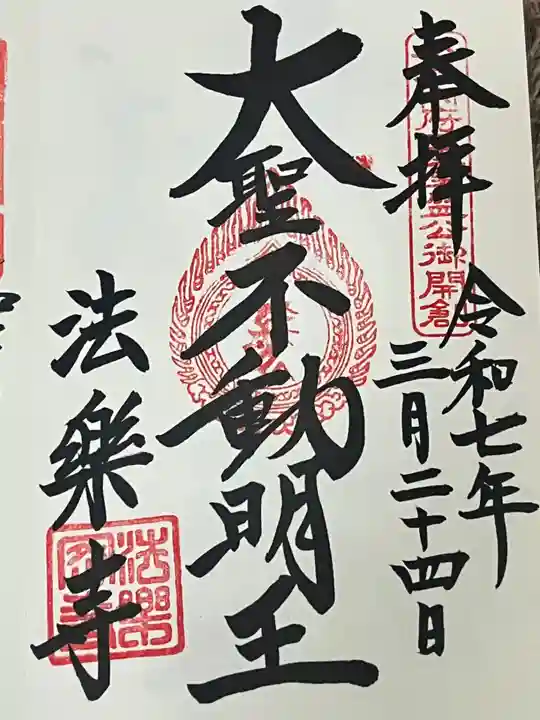 奉拝
令和七年
三月二十四日
大聖不動明王
法樂寺
公御開創
法樂